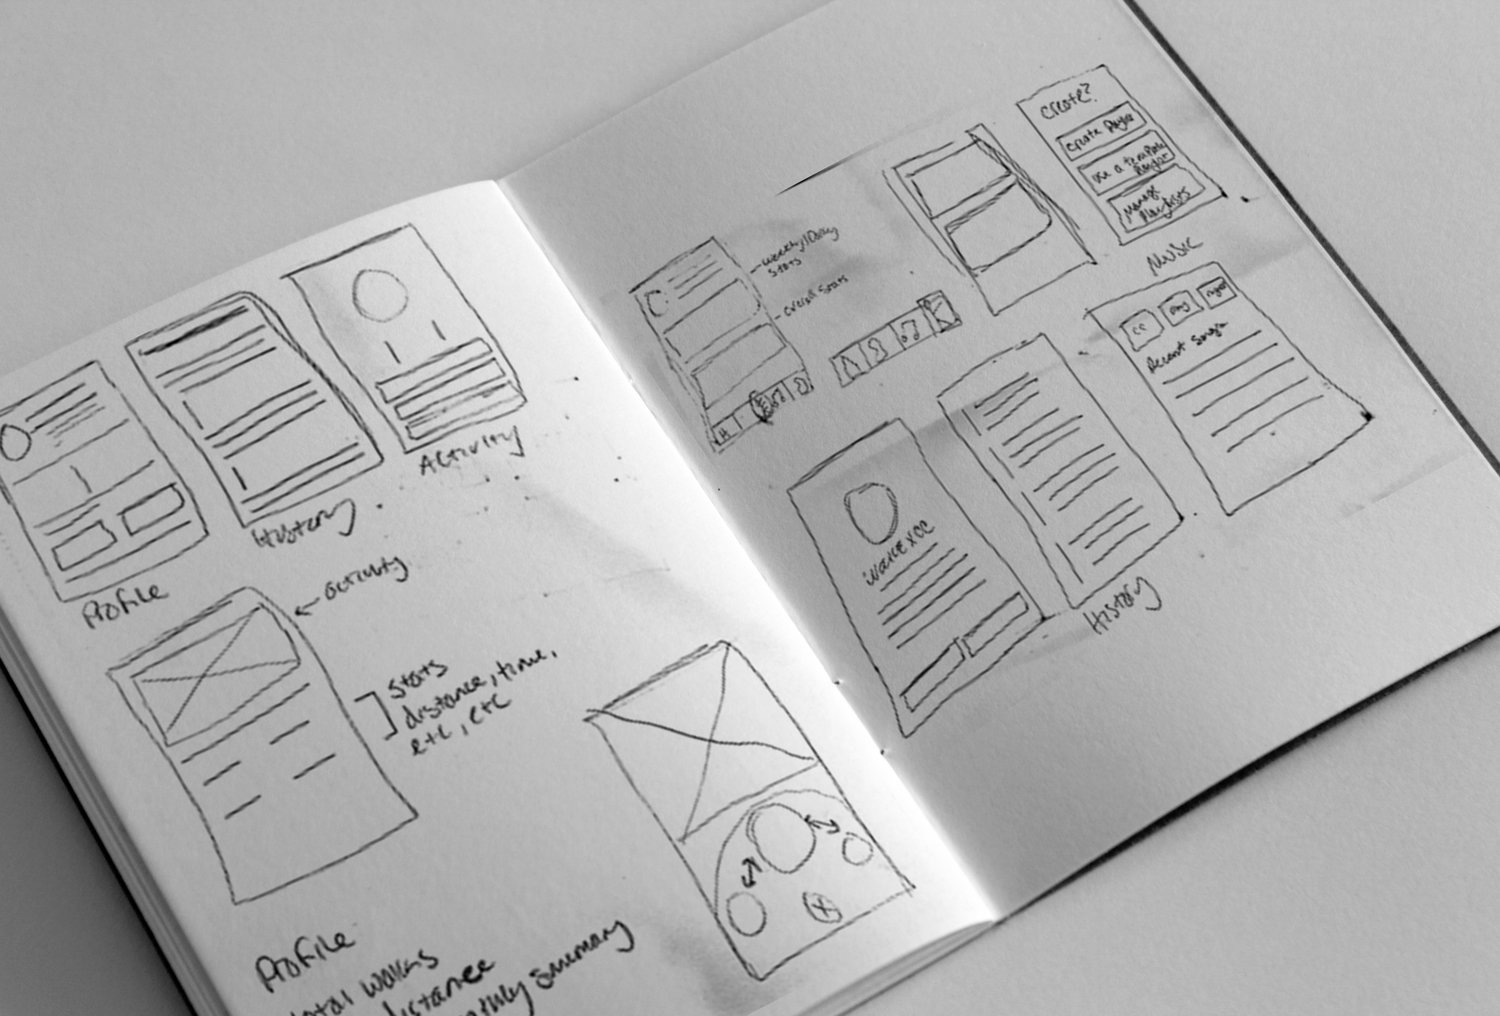 Profile
History
Activity
activity
stats
distance, time,
etc, etc
Profile
total walks
distance
summary
Weekly/Daily
stats
overall stats
create?
create
use a template
Manage
Playlists
Music
Recent songs
History